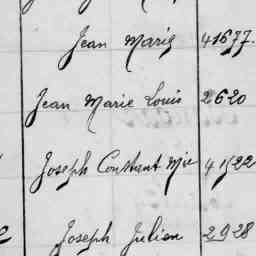 Jean Marie 41677.
Jean Marie Louis 2620
Joseph Constant Mie 4522
Joseph Julien 2928